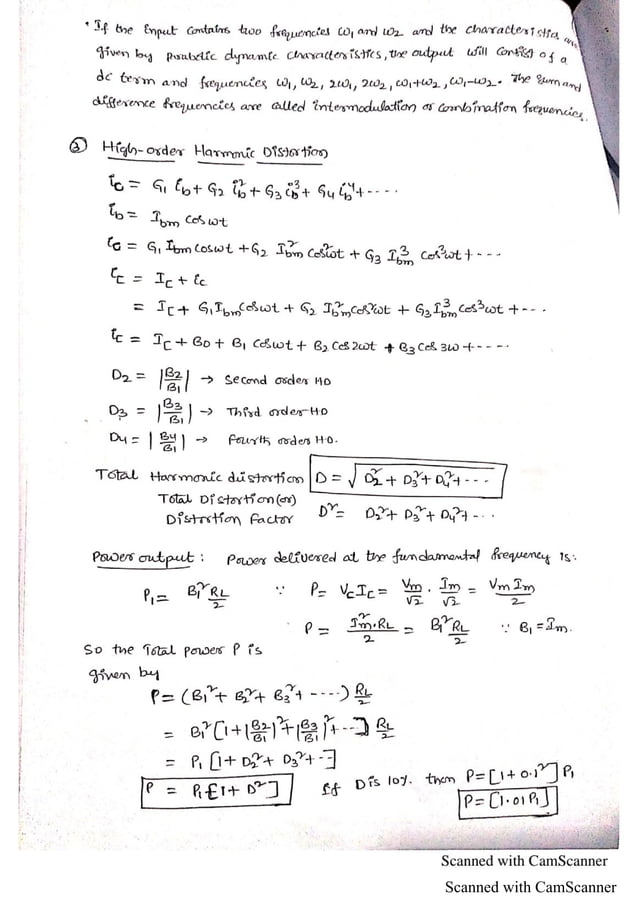 • If the Input Contains two frequencies ω1 and ω2 and the characteristics are
given by parabolic dynamic characteristics, the output will consist of a
dc term and frequencies ω1, ω2, 2ω1, 2ω2, ω1+ω2, ω1-ω2. The sum and
difference frequencies are called intermodulation or combination frequencies.
② High-order Harmonic Distortion
ic = G1 ib + G2 ib² + G3 ib³ + G4 ib⁴ + ----
ib = Ibm cos ωt
ic = G1 Ibm cos ωt + G2 I²bm cos²ωt + G3 I³bm cos³ωt + ---
iC = IC + ic
= IC + G1 Ibm cos ωt + G2 I²bm cos²ωt + G3 I³bm cos³ωt + ---
iC = IC + B0 + B1 cos ωt + B2 cos 2ωt + B3 cos 3ω + ----
D2 = |B2/B1| → Second order HD
D3 = |B3/B1| → Third order HD
D4 = |B4/B1| → Fourth order HD.
Total Harmonic distortion D = √D2² + D3² + D4² + ---
Total Distortion (or) D² = D2² + D3² + D4² + ---
Distortion Factor
Power output : Power delivered at the fundamental frequency is:
P1 = B1² RL/2 ∵ P = Vc Ic = Vm/√2 · Im/√2 = Vm Im/2
P = I²m·RL/2 = B1² RL/2 ∵ B1 = Im.
So the Total power P is
given by
P = (B1² + B2² + B3² + ----) RL/2
= B1² [1 + |B2/B1|² + |B3/B1|² + --] RL/2
= P1 [1 + D2² + D3² + --]
P = P1 [1 + D²] If D is 10%. then P = [1 + 0.1²] P1
P = [1.01 P1]
Scanned with CamScanner
Scanned with CamScanner